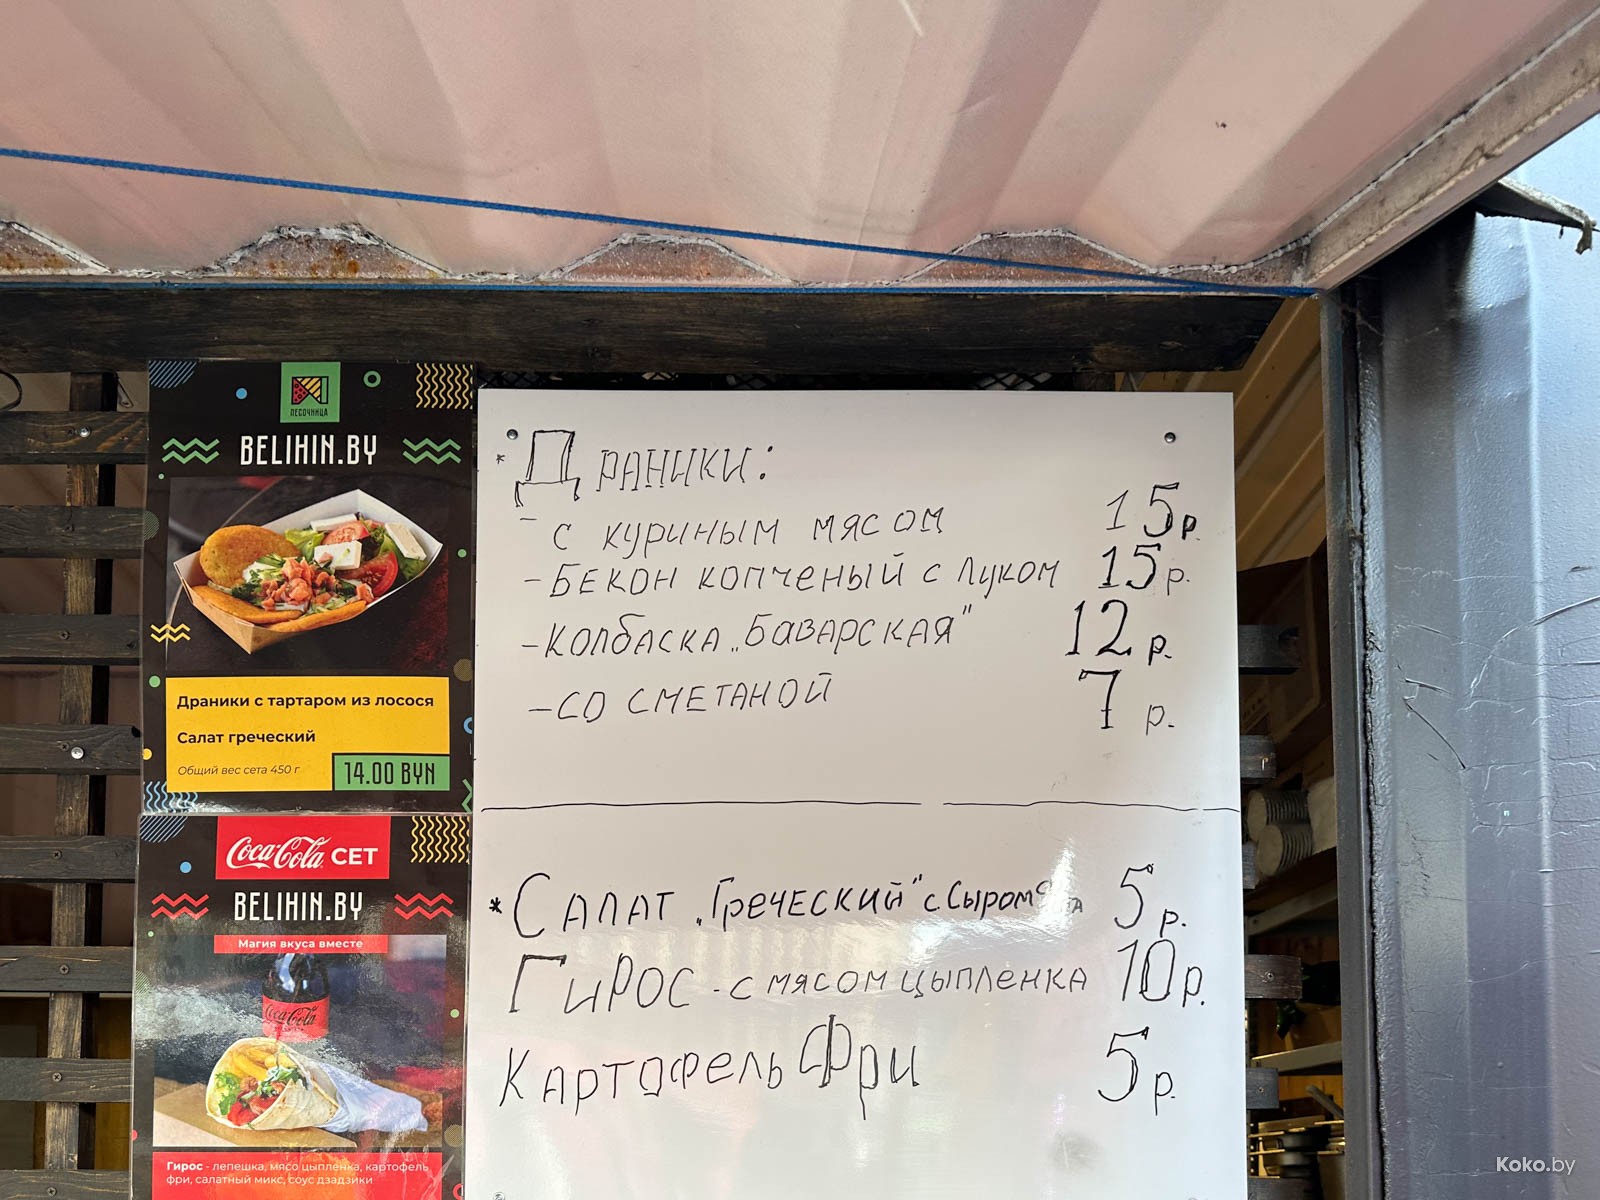 ПЕСОЧНИЦА
BELIHIN.BY
Драники с тартаром из лосося
Салат греческий
Общий вес сета 450 г
14.00 BYN
Coca-Cola СЕТ
BELIHIN.BY
Магия вкуса вместе
Coca-Cola
Гирос - лепешка, мясо цыпленка, картофель
фри, салатный микс, соус дзадзики
* Драники:
- с куриным мясом 15р.
- Бекон копченый с луком 15р.
- Колбаска „Баварская" 12р.
- со сметаной 7р.
* Салат „Греческий" с сыром 5р.
Гирос - с мясом цыпленка 10р.
Картофель Фри 5р.
Koko.by